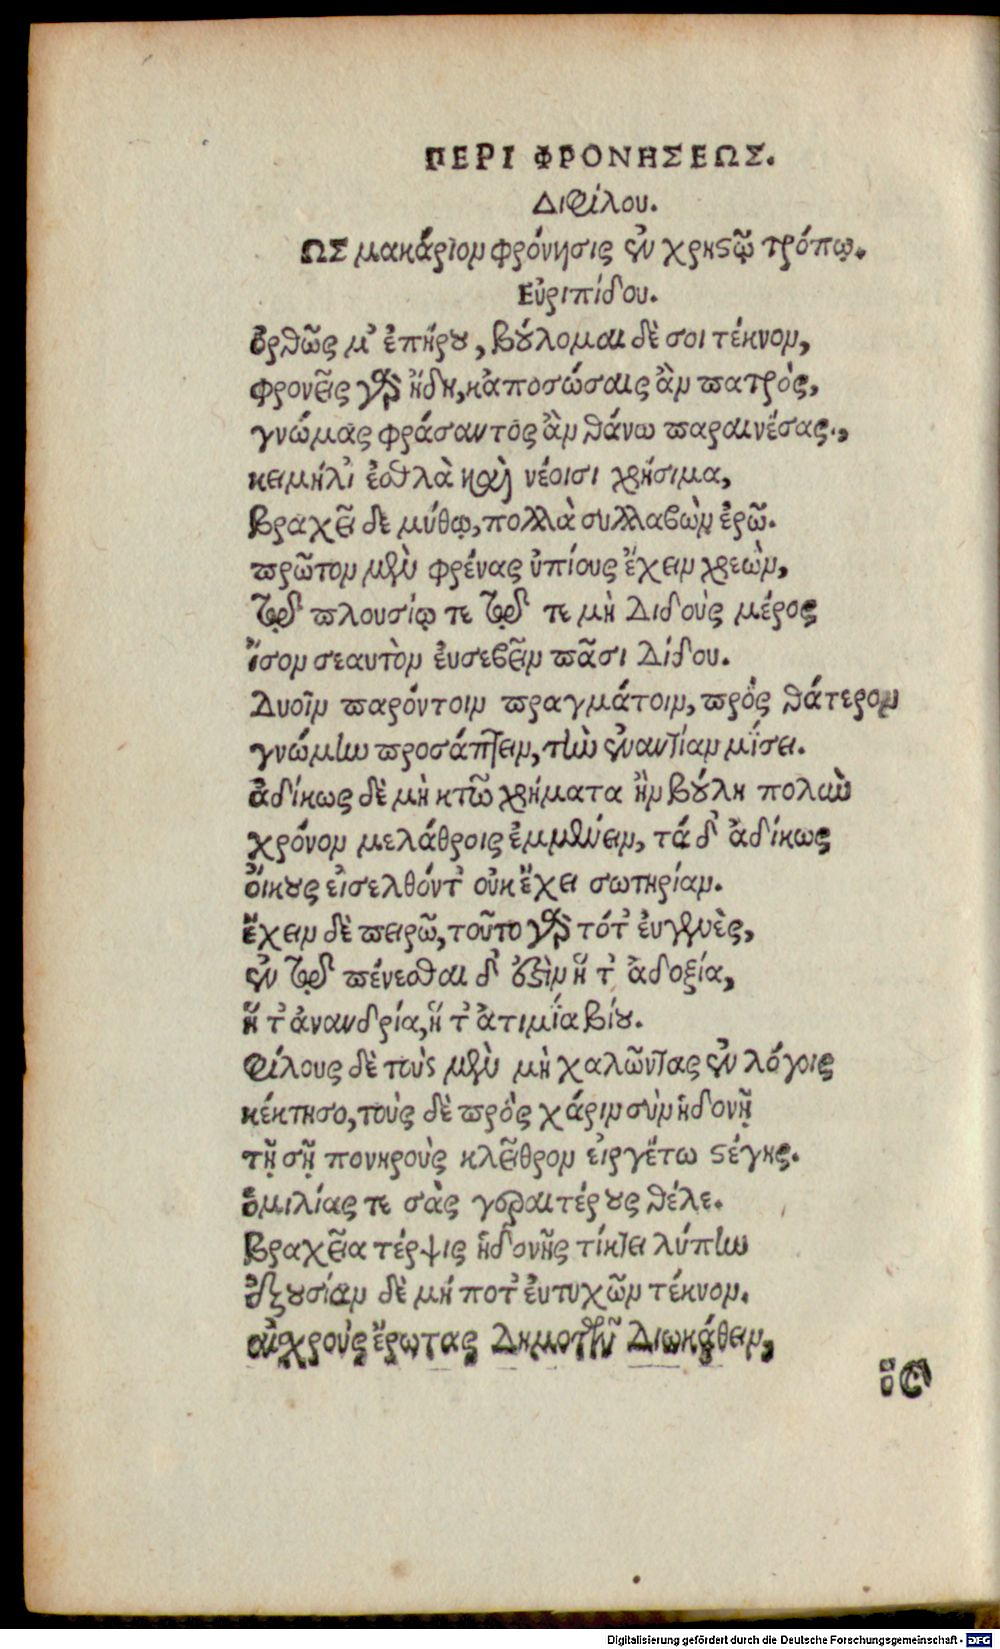 ΠΕΡΙ ΦΡΟΝΗΣΕΩΣ.
Διφίλου.
ΩΣ μακάριον φρόνησις ἐν χρηστῷ τρόπῳ.
Εὐριπίδου.
ὀρθῶς μ᾽ ἐπήρου, βούλομαι δὲ σοι τέκνον,
φρονεῖς γὰρ ἤδη, κἀποσώσαις ἂν πατρὸς,
γνώμας φράσαντος ἂν θάνω παραινέσας.,
κειμήλι᾽ ἐσθλὰ καὶ νέοισι χρήσιμα,
βραχεῖ δὲ μύθῳ, πολλὰ συλλαβὼν ἐρῶ.
πρῶτον μὲν φρένας ὑπίους ἔχειν χρεὼν,
τῷ πλουσίῳ τε τῷ τε μὴ διδοὺς μέρος
ἴσον σεαυτὸν ἐυσεβεῖν πᾶσι δίδου.
Δυοῖν παρόντοιν πραγμάτοιν, πρὸς θάτερον
γνώμην προσάπτειν, τὴν ἐναντίαν μίσει.
ἀδίκως δὲ μὴ κτῶ χρήματα ἢν βούλη πολὺν
χρόνον μελάθροις ἐμμένειν, τά δ᾽ ἀδίκως
οἴκους εἰσελθόντ᾽ οὐκ ἔχει σωτηρίαν.
ἔχειν δὲ πειρῶ, τοῦτο γὰρ τότ᾽ ἐυγενὲς,
ἐν τῷ πένεσθαι δ᾽ ἐστὶν ἥ τ᾽ ἀδοξία,
ἥ τ᾽ ἀνανδρία, ἥ τ᾽ ἀτιμία βίου.
Φίλους δὲ τοὺς μὲν μὴ χαλῶντας ἐν λόγοις
κέκτησο, τοὺς δὲ πρὸς χάριν σὺν ἡδονῇ
τῇ σῇ πονηροὺς κλεῖθρον εἰργέτω στέγης.
ὁμιλίας τε σὰς γεραιτέρους θέλε.
βραχεῖα τέρψις ἡδονῆς τίκτει λύπην
ἐξουσίαν δὲ μή ποτ᾽ ἐυτυχῶν τέκνον.
αἰχροὺς ἔρωτας Δημοτῶν Διωκάθειν,